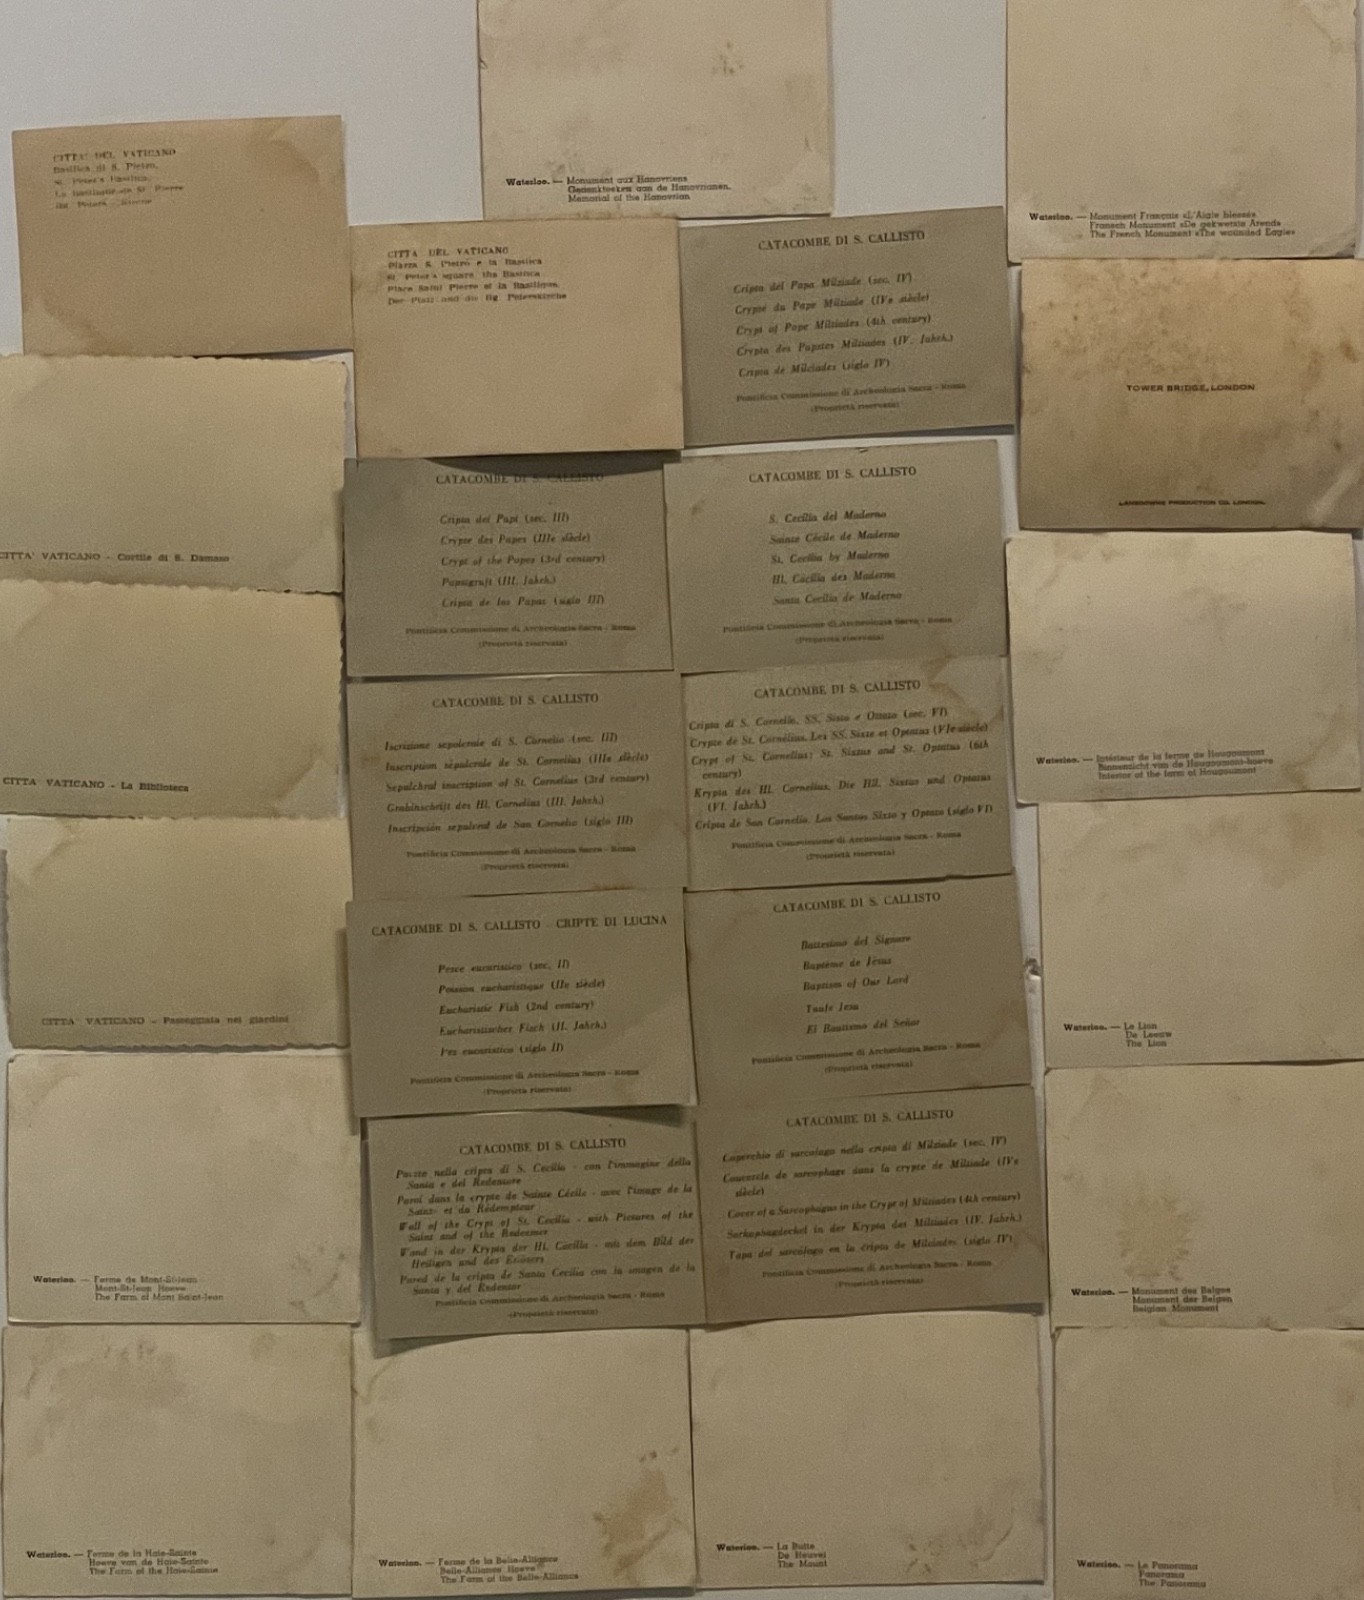 CITTA' DEL VATICANO
Basilica di S. Pietro,
St. Peter's Basilica,
La Basilique de St. Pierre
Waterloo. — Monument aux Hanovriens
Gedenkteeken aan de Hanovrianen.
Memorial of the Hanovrian
Waterloo. — Monument Français «L'Aigle blessé»
Fransch Monument «De gekwetste Arend»
The French Monument «The wounded Eagle»
CITTA DEL VATICANO
Piazza S. Pietro e la Basilica
St. Peter's square, the Basilica
Place Saint Pierre et la Basilique
Der Platz und die Hg. Peterskirche
CATACOMBE DI S. CALLISTO
Cripta del Papa Milziade (sec. IV)
Crypte du Pape Miltiade (IVe siècle)
Crypt of Pope Miltiades (4th century)
Crypta des Papstes Milziades (IV. Jahrh.)
Cripta de Milciades (siglo IV)
Pontificia Commissione di Archeologia Sacra - Roma
(Proprietà riservata)
TOWER BRIDGE, LONDON
LANSDOWNE PRODUCTION CO. LONDON.
CITTA' VATICANO - Cortile di S. Damaso
CATACOMBE DI S. CALLISTO
Cripta dei Papi (sec. III)
Crypte des Papes (IIIe siècle)
Crypt of the Popes (3rd century)
Papsigruft (III. Jahrh.)
Cripta de los Papas (siglo III)
Pontificia Commissione di Archeologia Sacra - Roma
(Proprietà riservata)
CATACOMBE DI S. CALLISTO
S. Cecilia del Maderno
Sainte Cécile de Maderno
St. Cecilia by Maderno
Hl. Cäcilia des Maderno
Santa Cecilia de Maderno
Pontificia Commissione di Archeologia Sacra - Roma
(Proprietà riservata)
CITTA' VATICANO - La Biblioteca
CATACOMBE DI S. CALLISTO
Iscrizione sepolcrale di S. Cornelio (sec. III)
Inscription sépulcrale de St. Cornelius (IIIe siècle)
Sepulchral inscription of St. Cornelius (3rd century)
Grabinschrift des Hl. Cornelius (III. Jahrh.)
Inscripción sepulcral de San Cornelio (siglo III)
Pontificia Commissione di Archeologia Sacra - Roma
(Proprietà riservata)
CATACOMBE DI S. CALLISTO
Cripta di S. Cornelio. SS. Sisto e Ottato (sec. VI)
Crypte de St. Cornélius. Les SS. Sixte et Optatus (VIe siècle)
Crypt of St. Cornelius: St. Sixtus and St. Optatus (6th
century)
Krypta des Hl. Cornelius. Die Hll. Sixtus und Optatus
(VI. Jahrh.)
Cripta de San Cornelio. Los Santos Sixto y Optato (siglo VI)
Pontificia Commissione di Archeologia Sacra - Roma
(Proprietà riservata)
Waterloo. — Intérieur de la ferme de Hougoumont
Binnenzicht van de Hougoumont-hoeve
Interior of the farm of Hougoumont
CITTA' VATICANO - Passeggiata nei giardini
CATACOMBE DI S. CALLISTO - CRIPTE DI LUCINA
Pesce eucaristico (sec. II)
Poisson eucharistique (IIe siècle)
Eucharistic Fish (2nd century)
Eucharistischer Fisch (II. Jahrh.)
Pez eucaristico (siglo II)
Pontificia Commissione di Archeologia Sacra - Roma
(Proprietà riservata)
CATACOMBE DI S. CALLISTO
Battesimo del Signore
Baptême de Jésus
Baptism of Our Lord
Taufe Jesu
El Bautismo del Señor
Pontificia Commissione di Archeologia Sacra - Roma
(Proprietà riservata)
Waterloo. — Le Lion
De Leeuw
The Lion
Waterloo. — Ferme de Mont-St-Jean
Mont-St-Jean Hoeve
The Farm of Mont Saint-Jean
CATACOMBE DI S. CALLISTO
Parete nella cripta di S. Cecilia - con l'immagine della
Santa e del Redentore
Paroi dans la crypte de Sainte Cécile - avec l'image de la
Sainte et du Rédempteur
Wall of the Crypt of St. Cecilia - with Pictures of the
Saint and of the Redeemer
Wand in der Krypta der Hl. Cäcilia - mit dem Bild der
Heiligen und des Erlösers
Pared de la cripta de Santa Cecilia con la imagen de la
Santa y del Redentor
Pontificia Commissione di Archeologia Sacra - Roma
(Proprietà riservata)
CATACOMBE DI S. CALLISTO
Coperchio di sarcofago nella cripta di Milziade (sec. IV)
Couvercle de sarcophage dans la crypte de Miltiade (IVe
siècle)
Cover of a Sarcophagus in the Crypt of Miltiades (4th century)
Sarkophagdeckel in der Krypta des Milziades (IV. Jahrh.)
Tapa del sarcófago en la cripta de Milciades (siglo IV)
Pontificia Commissione di Archeologia Sacra - Roma
(Proprietà riservata)
Waterloo. — Monument des Belges
Monument der Belgen
Belgian Monument
Waterloo. — Ferme de la Haie-Sainte
Hoeve van de Haie-Sainte
The Farm of the Haie-Sainte
Waterloo. — Ferme de la Belle-Alliance
Belle-Alliance Hoeve
The Farm of the Belle-Alliance
Waterloo. — La Butte
De Heuvel
The Mount
Waterloo. — Le Panorama
Panorama
The Panorama